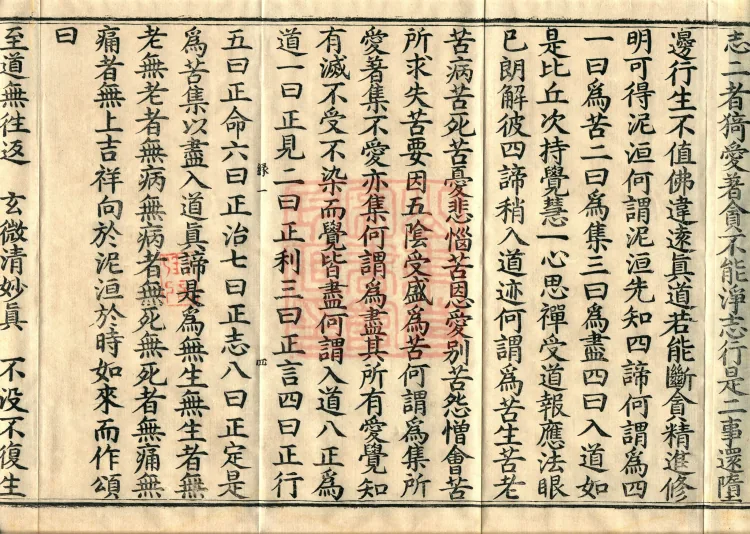 志二者猗愛著貪不能淨志行是二事還墮
邊行生不值佛違遠眞道若能斷貪精進修
明可得泥洹何謂泥洹先知四諦何謂爲四
一曰爲苦二曰爲集三曰爲盡四曰入道如
是比丘次持覺慧一心思禪受道報應法眼
已朗解彼四諦稍入道迹何謂爲苦生苦老
苦病苦死苦憂悲惱苦恩愛別苦怨憎會苦
所求失苦要因五陰受盛爲苦何謂爲集所
愛著集不愛亦集何謂爲盡其所有愛覺知
有滅不受不染而覺皆盡何謂入道八正爲
道一曰正見二曰正利三曰正言四曰正行
五曰正命六曰正治七曰正志八曰正定是
爲苦集以盡入道眞諦是爲無生無生者無
老無老者無病無病者無死無死者無痛無
痛者無上吉祥向於泥洹於時如來而作頌
曰
至道無往返 玄微清妙眞 不沒不復生